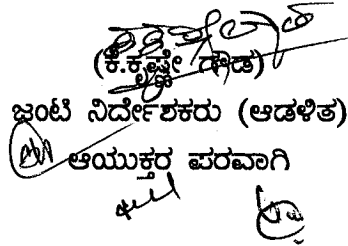 (ಕೆ.ಕೃಷ್ಣೇ ಗೌಡ)
ಜಂಟಿ ನಿರ್ದೇಶಕರು (ಆಡಳಿತ)
ಆಯುಕ್ತರ ಪರವಾಗಿ